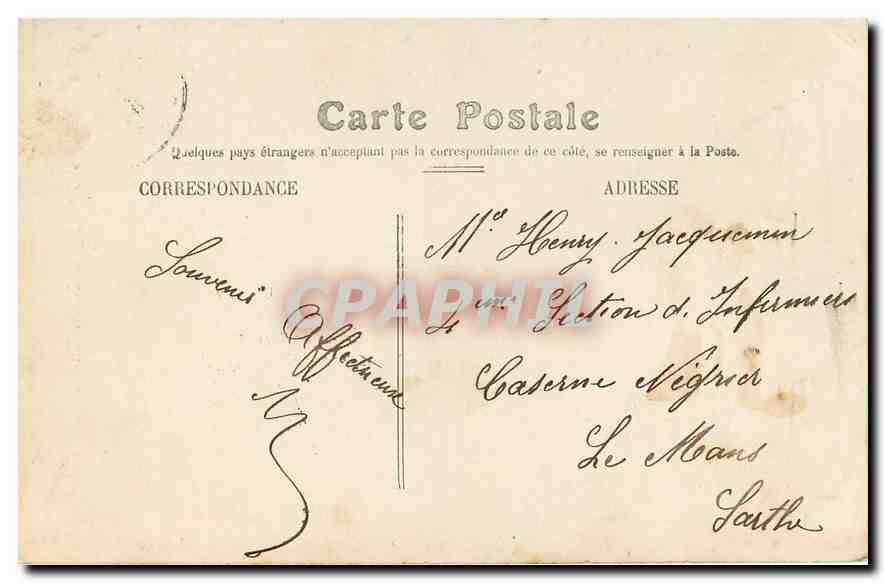 Carte Postale
Quelques pays étrangers n'acceptant pas la correspondance de ce côté, se renseigner à la Poste.
CORRESPONDANCE
ADRESSE
Souvenir
Affectueux
Mr Henry. Jacquemin
4eme Section d. Infirmiers
Caserne Négrier
Le Mans
Sarthe
CPAPHIL